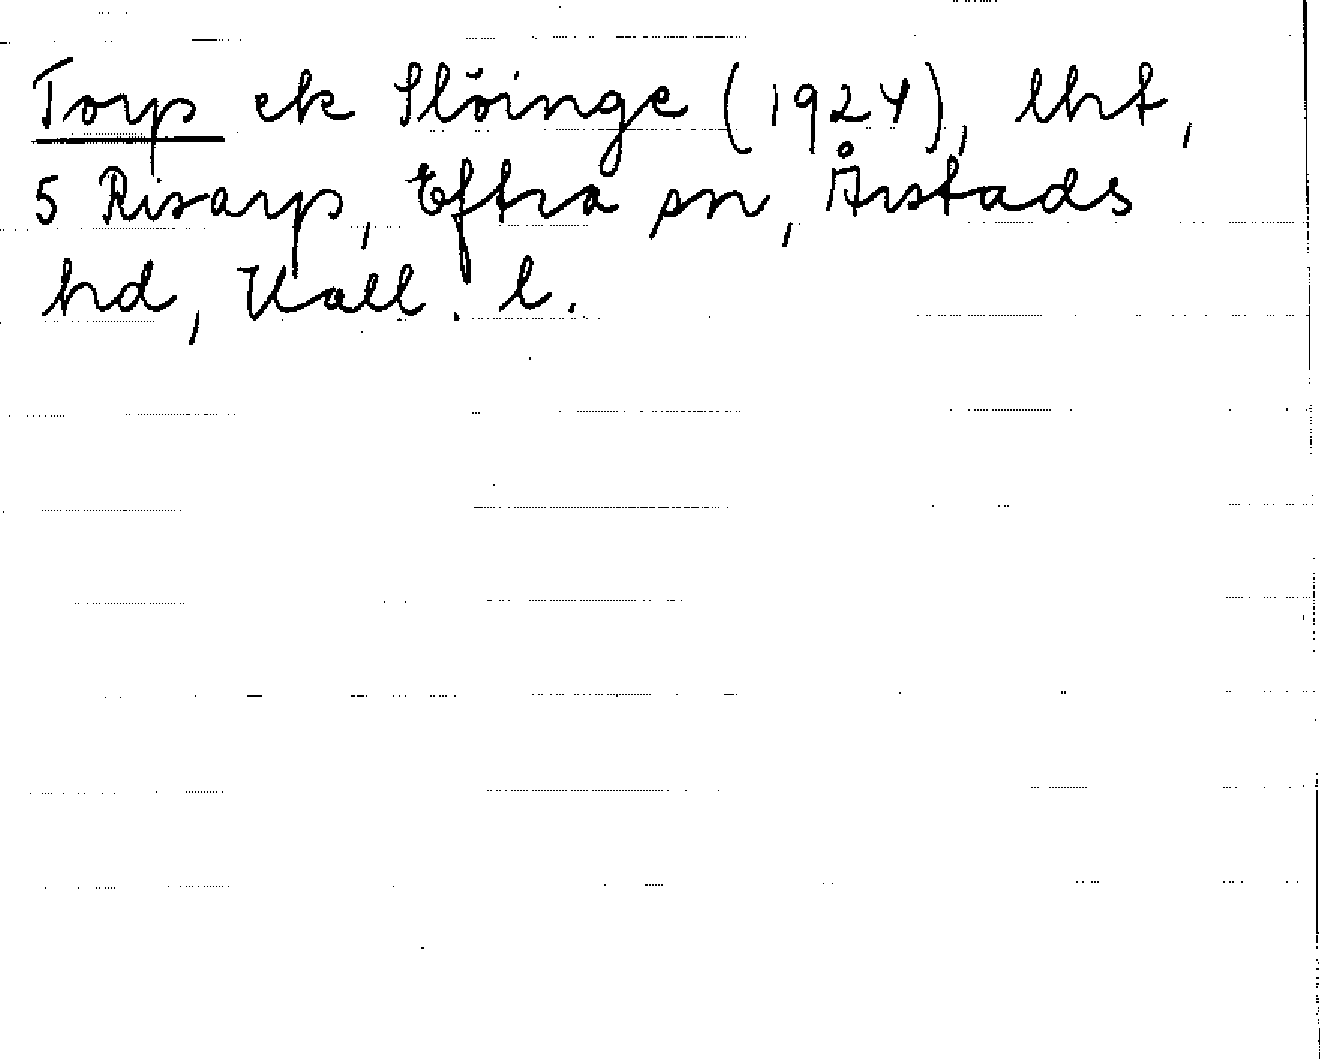 Torp ek Slöinge (1924), lht,
5 Risarp, Eftra sn, Årstads
hd, Hall. l.